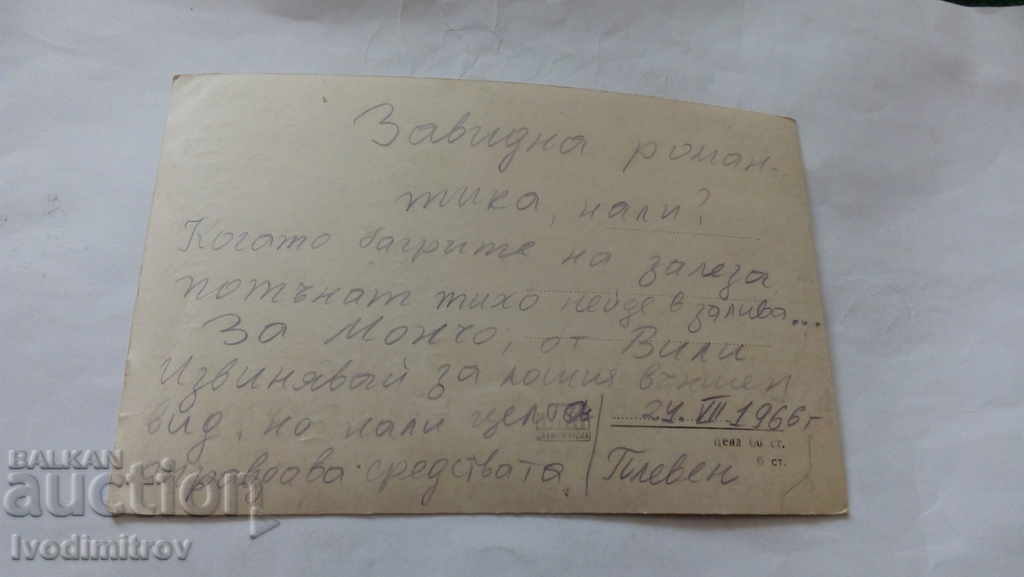 Завидна роман-
тика, нали?
Когато багрите на залеза
потънат тихо нейде в залива...
За Мончо, от Вили
Извинявай за лошия външен
вид, но нали целта
оправдава средствата
24. VII 1966 г
цена 60 ст.
6 ст.
Плевен
BALKAN
auction
Ivodimitrov